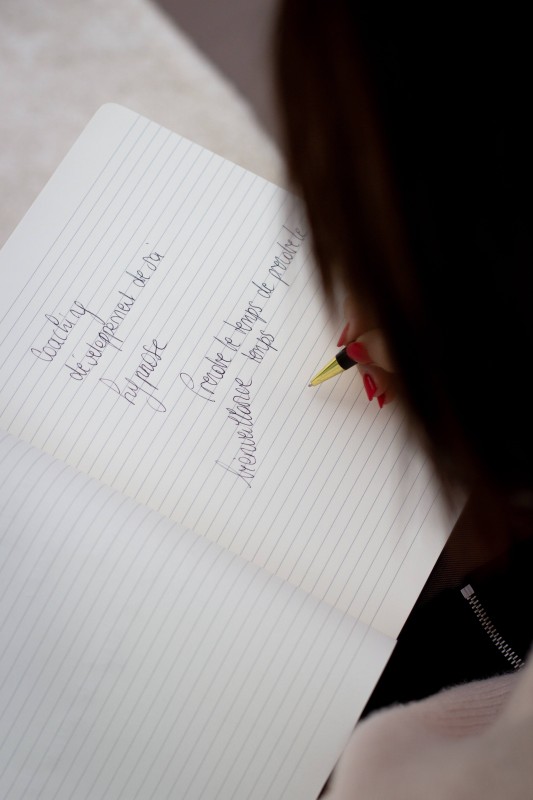 Coaching
développement de soi
hypnose
Prendre le temps de prendre le
temps
bienveillance